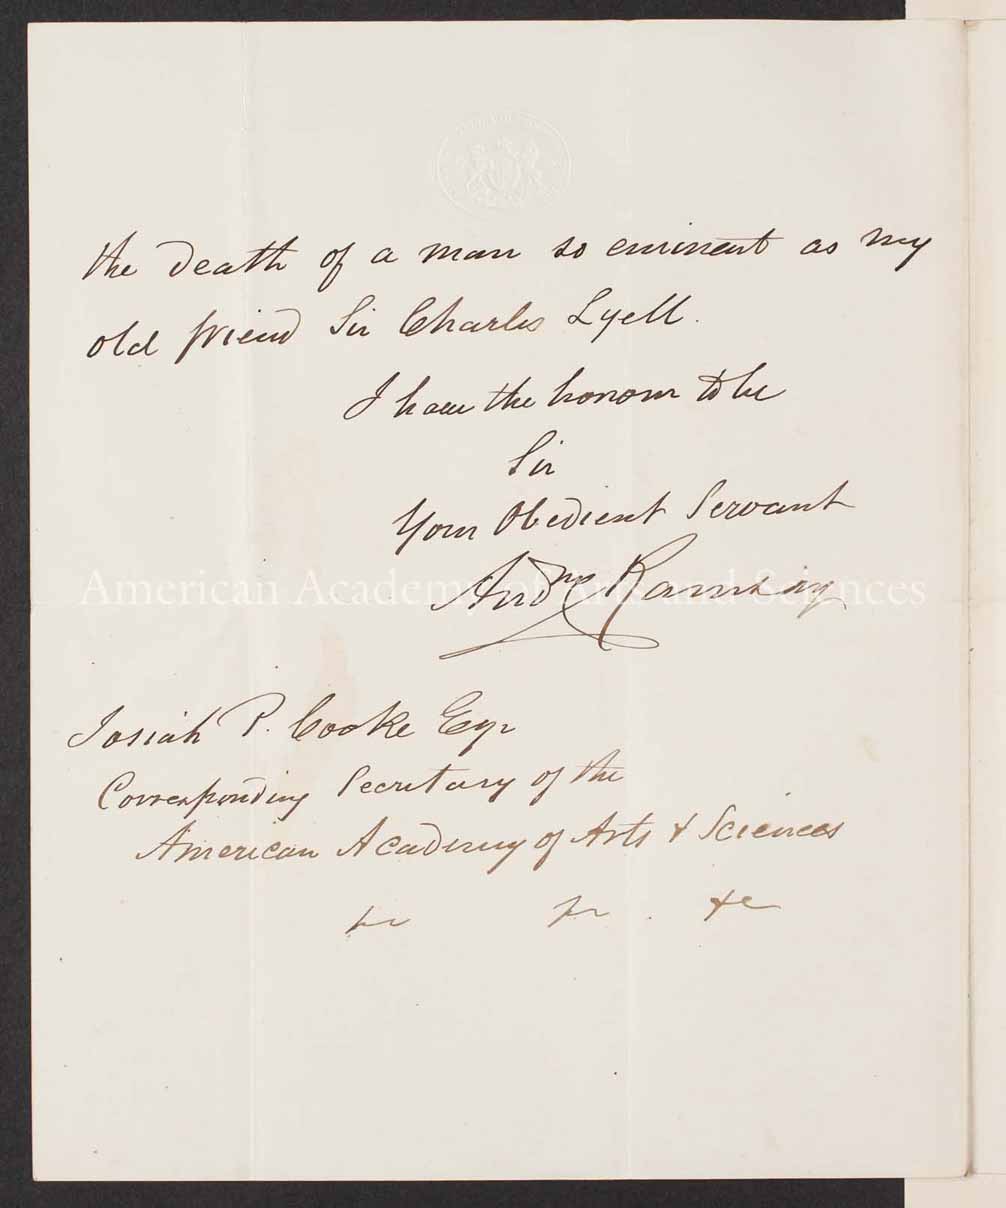 the death of a man so eminent as my
old friend Sir Charles Lyell.
I have the honour to be
Sir
Your Obedient Servant
And.w C Ramsay
American Academy of Arts and Sciences
Josiah P. Cooke Esqr
Corresponding Secretary of the
American Academy of Arts & Sciences
&c &c . &c